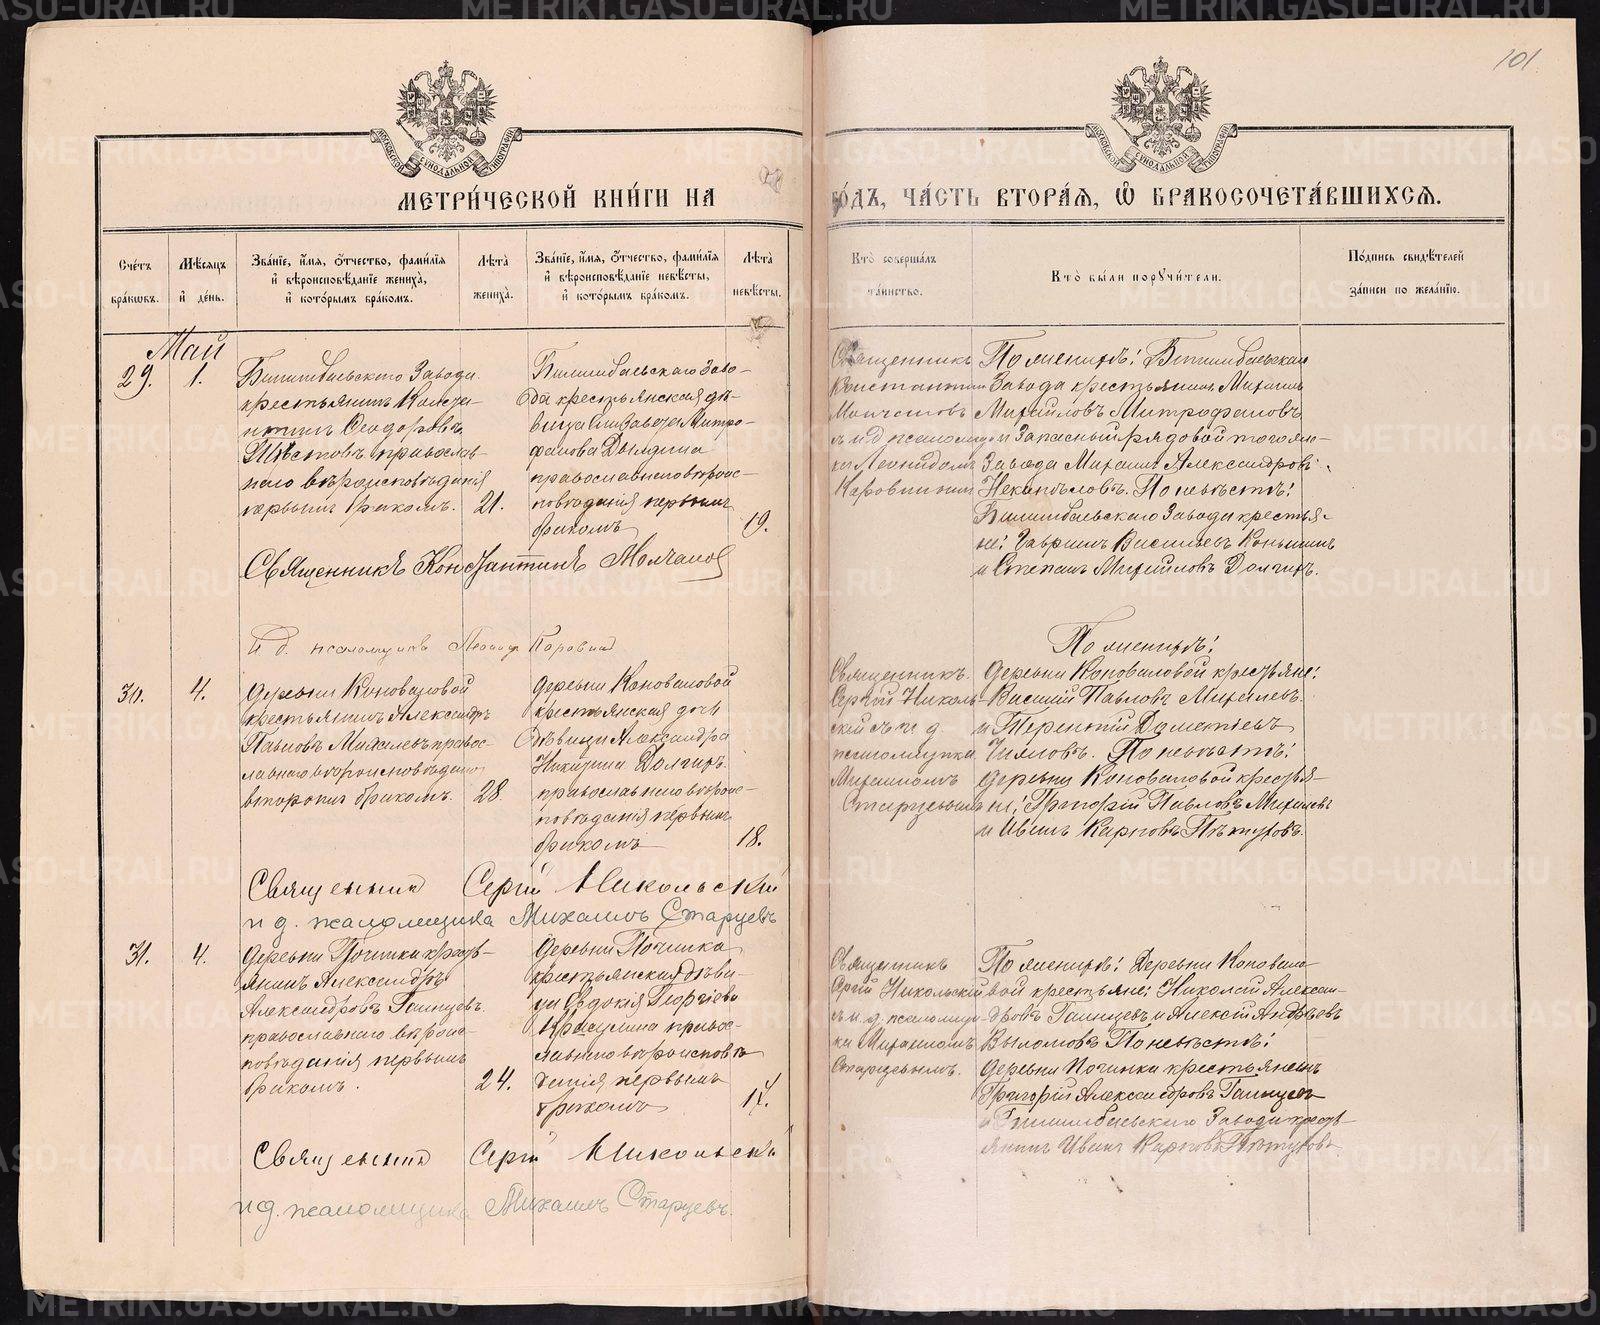 101
МОСКОВСКОЙ СѴНОДАЛЬНОЙ ТИПОГРАФІИ
МОСКОВСКОЙ СѴНОДАЛЬНОЙ ТИПОГРАФІИ
МЕТРИ́ЧЕСКОЙ КНИ́ГИ НА
ГО́ДЪ, ЧА́СТЬ ВТОРА́Я, Ѡ҆ БРАКОСОЧЕТА́ВШИХСѦ.
Сче́тъ бра́кѡвъ.
Мѣ́сяцъ и҆ де́нь.
Зва́нїе, и҆́мя, ѻ҆́тчество, фами́лїя и҆ вѣроисповѣ́данїе жениха̀, и҆ кото́рымъ бра́комъ.
Лѣ́та жениха̀.
Зва́нїе, и҆́мя, ѻ҆́тчество, фами́лїя и҆ вѣроисповѣ́данїе невѣ́сты, и҆ кото́рымъ бра́комъ.
Лѣ́та невѣ́сты.
Кто̀ соверша́лъ та́инство.
Кто̀ бы́ли порꙋчи́тели.
По́дпись свидѣ́телей за́писи по жела́нїю.
Май
29.
1.
Билимбаевскаго Завода
крестьянинъ Констан-
тинъ Ѳеодоровъ
Шестовъ православ-
наго вѣроисповѣданія
первымъ бракомъ.
21.
Билимбаевскаго Заво-
да крестьянская дѣ-
вица Елизавета Митро-
фанова Дылдина
православнаго вѣроис-
повѣданія первымъ
бракомъ
19.
Священникъ
Константинъ
Молчановъ
съ и д псаломщи
ка Леонидомъ
Коровинымъ
По женихѣ: Билимбаевскаго
Завода крестьянинъ Михаилъ
Михайловъ Митрофановъ
и Запасный рядовой того же
Завода Михаилъ Александровъ
Некипѣловъ. По невѣстѣ:
Билимбаевскаго Завода крестья-
не: Гавріилъ Васильевъ Коньшинъ
и Степанъ Михайловъ Долгихъ.
Священникъ Константинъ Молчановъ
И. д. псаломщика Леонидъ Коровинъ
30.
4.
Деревни Коноваловой
крестьянинъ Александръ
Павловъ Михалевъ правос-
лавнаго вѣроисповѣданія
вторымъ бракомъ.
28.
Деревни Коноваловой
крестьянская дочь
дѣвица Александра
Никитина Долгихъ
православнаго вѣроис-
повѣданія первымъ
бракомъ
18.
Священникъ
Сергій Николь
скій съ и д
псаломщика
Михаиломъ
Старцевымъ
По женихѣ:
Деревни Коноваловой крестьяне:
Василій Павловъ Михалевъ
и Терентій Дометіевъ
По невѣстѣ:
деревни Коноваловой крестья-
не: Григорій Павловъ Михалевъ
и Иванъ Карповъ Пѣтуховъ.
Священникъ Сергій Никольскій
и д. псаломщика Михаилъ Старцевъ
31.
4.
Деревни Починка кресть-
янинъ Александръ
Александровъ Галицевъ
православнаго вѣроис-
повѣданія первымъ
бракомъ.
24.
Деревни Починка
крестьянская дѣви-
ца Евдокія Георгіева
православнаго вѣроисповѣ
данія первымъ
бракомъ
17.
Священникъ
Сергій Никольскій
съ и. д. псаломщи-
ка Михаиломъ
Старцевымъ.
По женихѣ: Деревни Коновало-
вой крестьяне: Николай Алексан-
дровъ Галицевъ и Алексій Андреевъ
По невѣстѣ:
деревни Починка крестьянинъ
Григорій Александровъ Галицевъ
и Билимбаевскаго Завода кресть-
янинъ Иванъ Карповъ Пѣтуховъ.
Священникъ Сергій Никольскій
и д. псаломщика Михаилъ Старцевъ.
METRIKI.GASO-URAL.RU